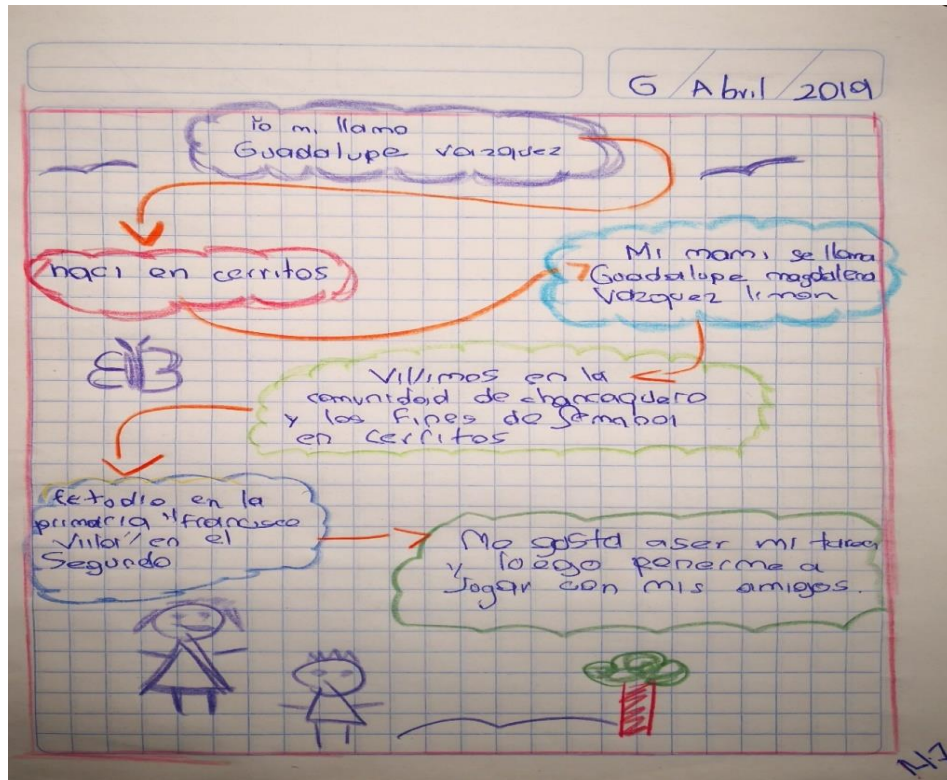 6 Abril 2019
Yo mi llamo
Guadalupe vazquez
naci en cerritos
Mi mami se llama
Guadalupe magdalena
vazquez limon
Vivimos en la
comunidad de charcaquero
y los fines de semana
en cerritos
Estodio en la
primaria "francisco
Villa" en el
Segundo
Me gosta aser mi tarea
y loego ponerme a
Jogar con mis amigos.